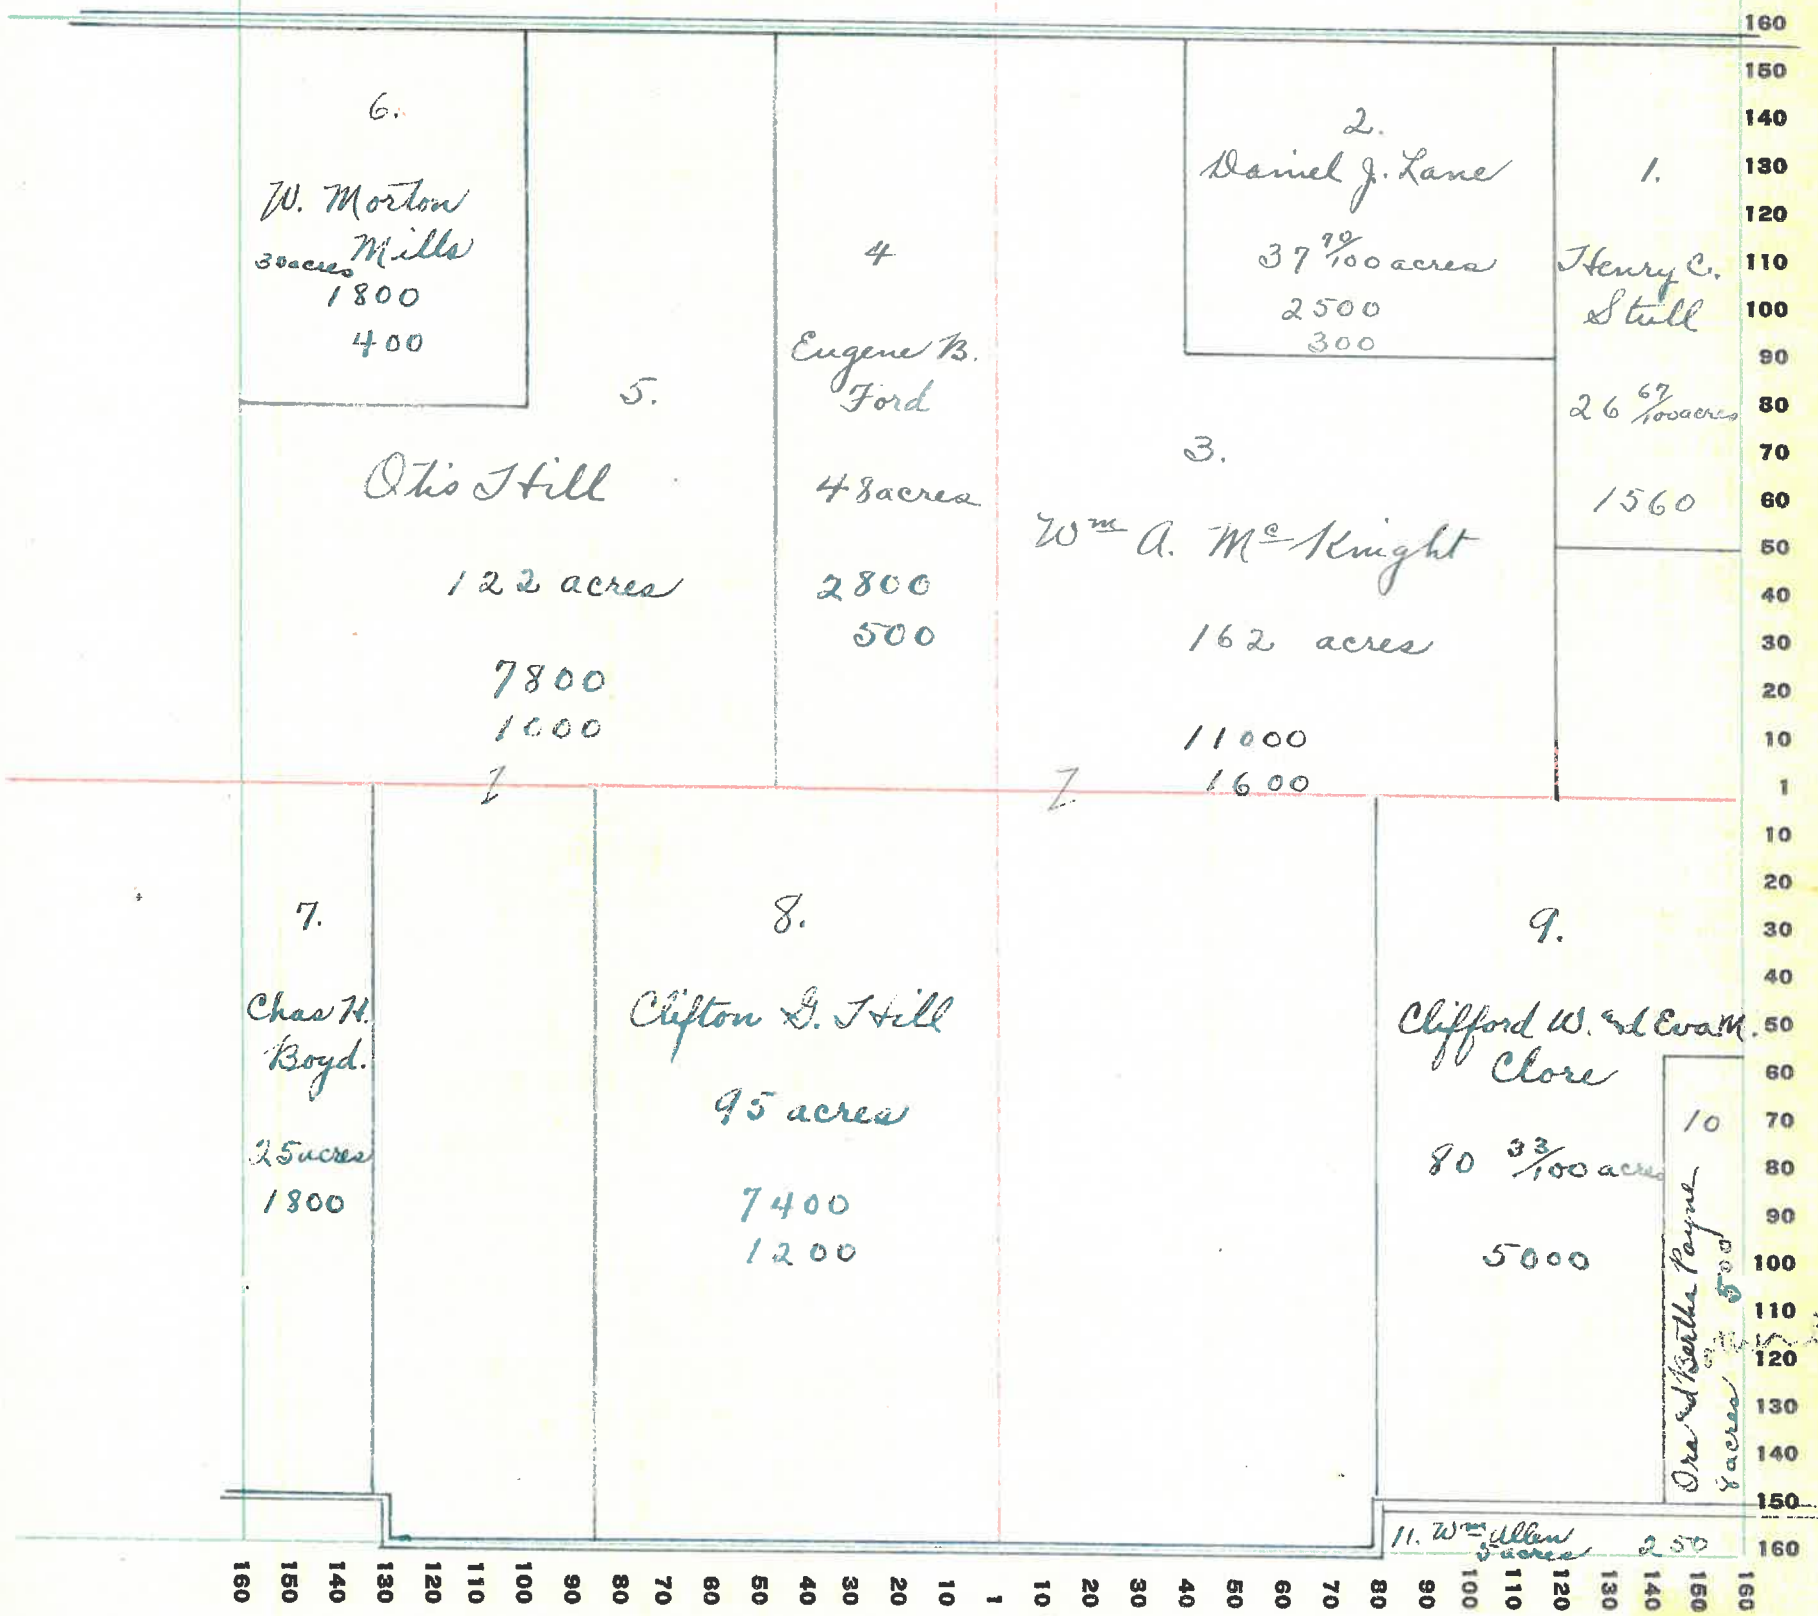 6.
W. Morton
Mills
30 acres
1800
400
5.
Otis Hill
122 acres
7800
1000
4
Eugene B.
Ford
48 acres
2800
500
2.
Daniel J. Lane
37 70/100 acres
2500
300
3.
Wm A. Mc Knight
162 acres
11000
1600
1.
Henry C.
Stull
26 67/100 acres
1560
Z
Z
7.
Chas H.
Boyd.
25 acres
1800
8.
Clifton G. Hill
95 acres
7400
1200
9.
Clifford W. and Eva M.
Clore
80 33/100 acres
5000
10
Ora and Bertha Payne
8 acres 500
11. Wm Allen
5 acres
250
160
150
140
130
120
110
100
90
80
70
60
50
40
30
20
10
1
10
20
30
40
50
60
70
80
90
100
110
120
130
140
150
160
160 150 140 130 120 110 100 90 80 70 60 50 40 30 20 10 1 10 20 30 40 50 60 70 80 90 100 110 120 130 140 150 160